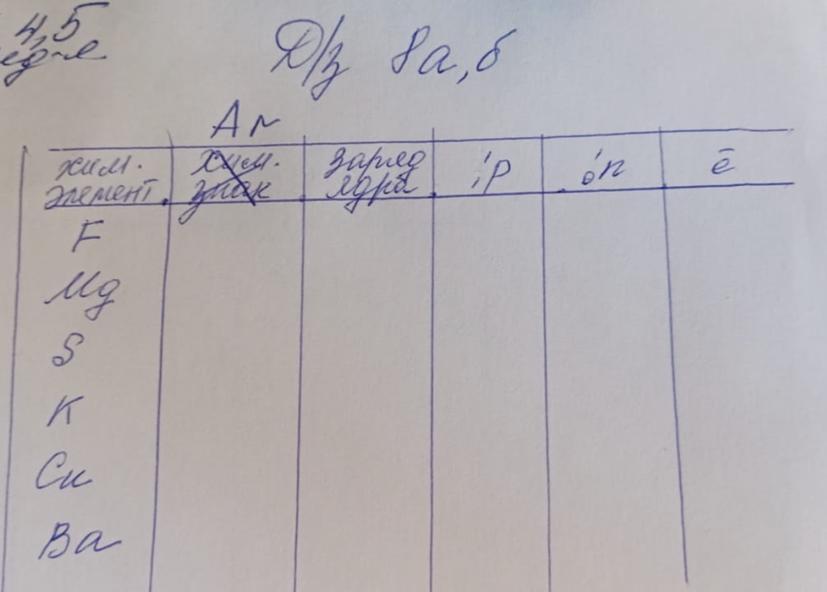 4,5
Д/з 8а,б
Ar
хим. элемент
хим. знак
заряд ядра
¹₁p
¹₀n
ē
F
Mg
S
K
Cu
Ba